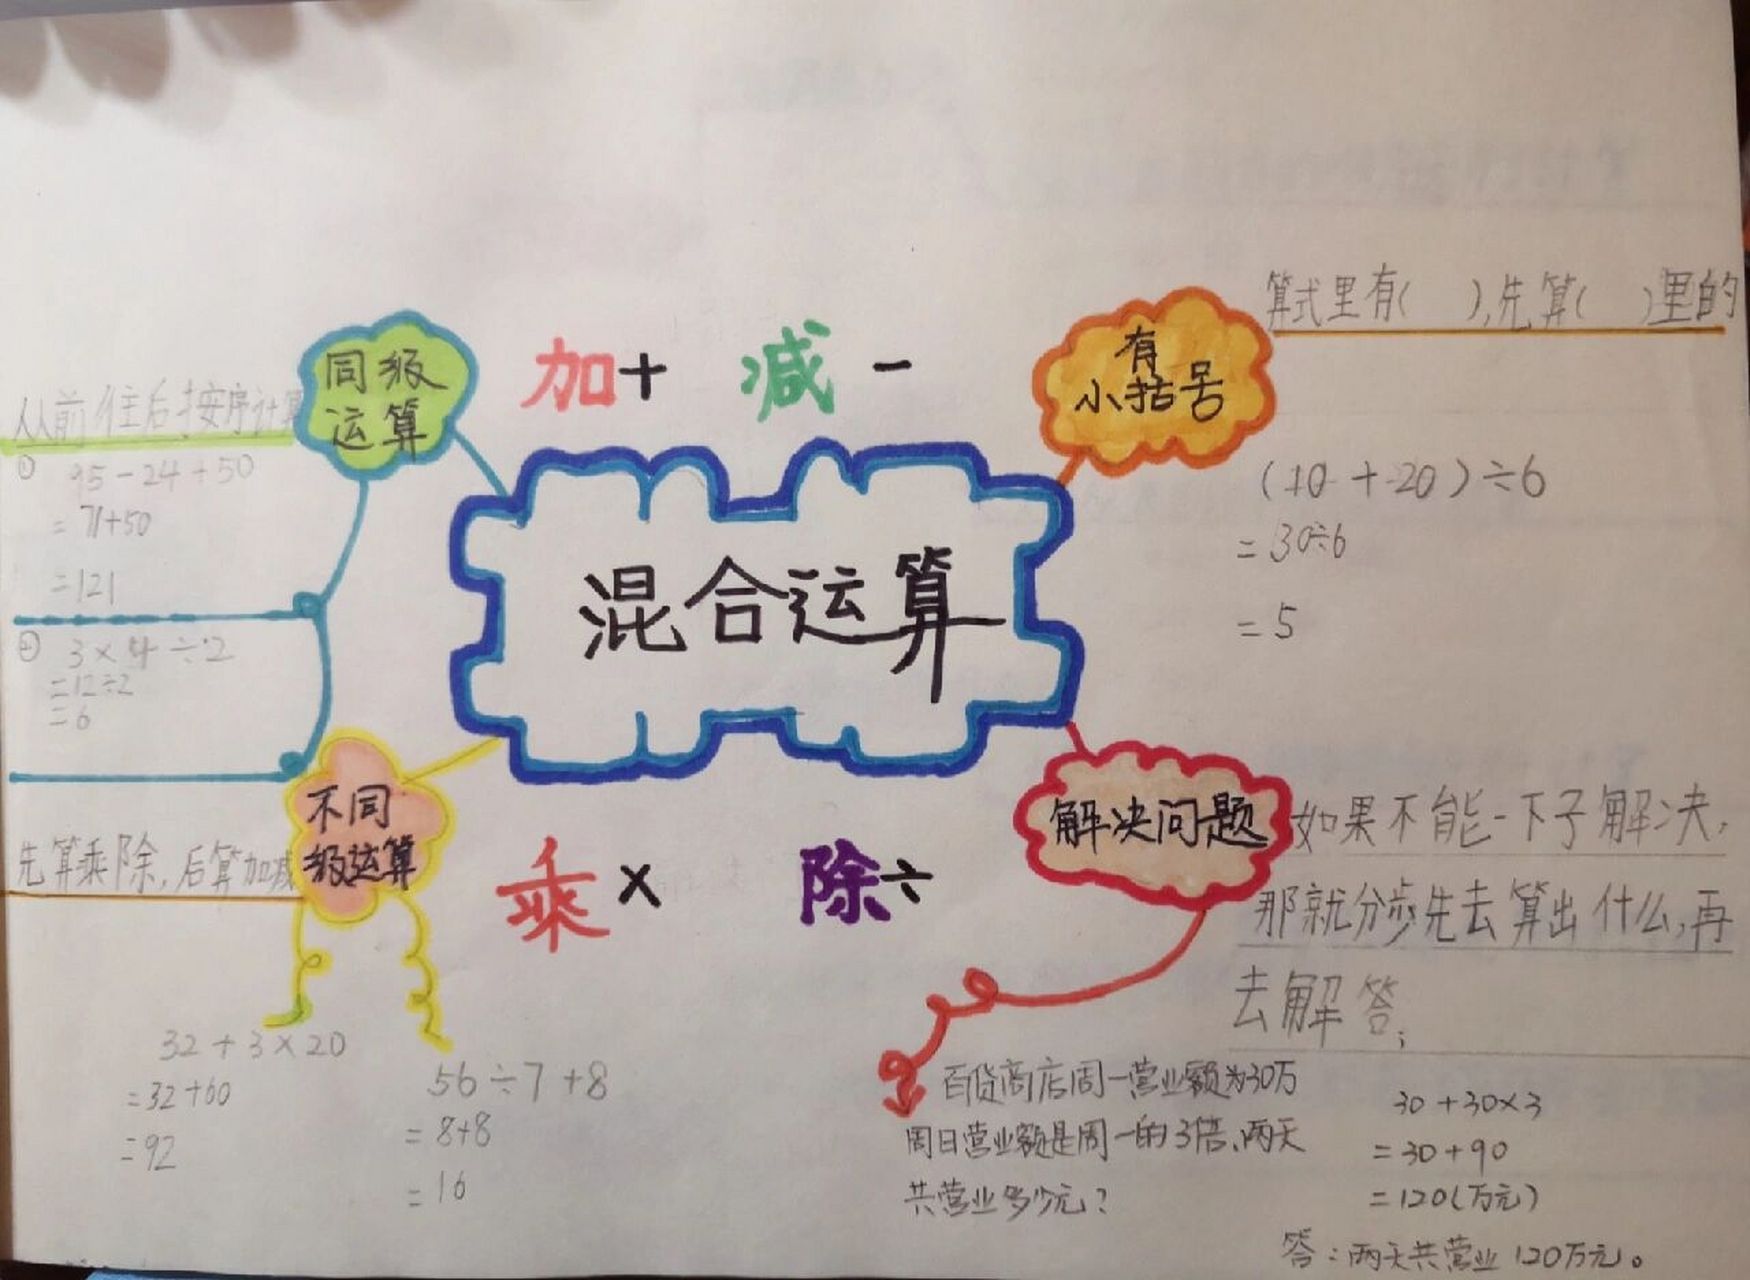 加+ 减-
混合运算
乘× 除÷
同级
运算
从前往后按序计算
① 95-24+50
=71+50
=121
② 3×4÷2
=12÷2
=6
不同
级运算
先算乘除,后算加减
32+3×20
=32+60
=92
56÷7+8
=8+8
=16
有
小括号
算式里有( ),先算( )里的
(10+20)÷6
=30÷6
=5
解决问题
如果不能一下子解决,
那就分步先去算出什么,再
去解答;
百货商店周一营业额为30万
周日营业额是周一的3倍,两天
共营业多少元?
30+30×3
=30+90
=120(万元)
答:两天共营业120万元。